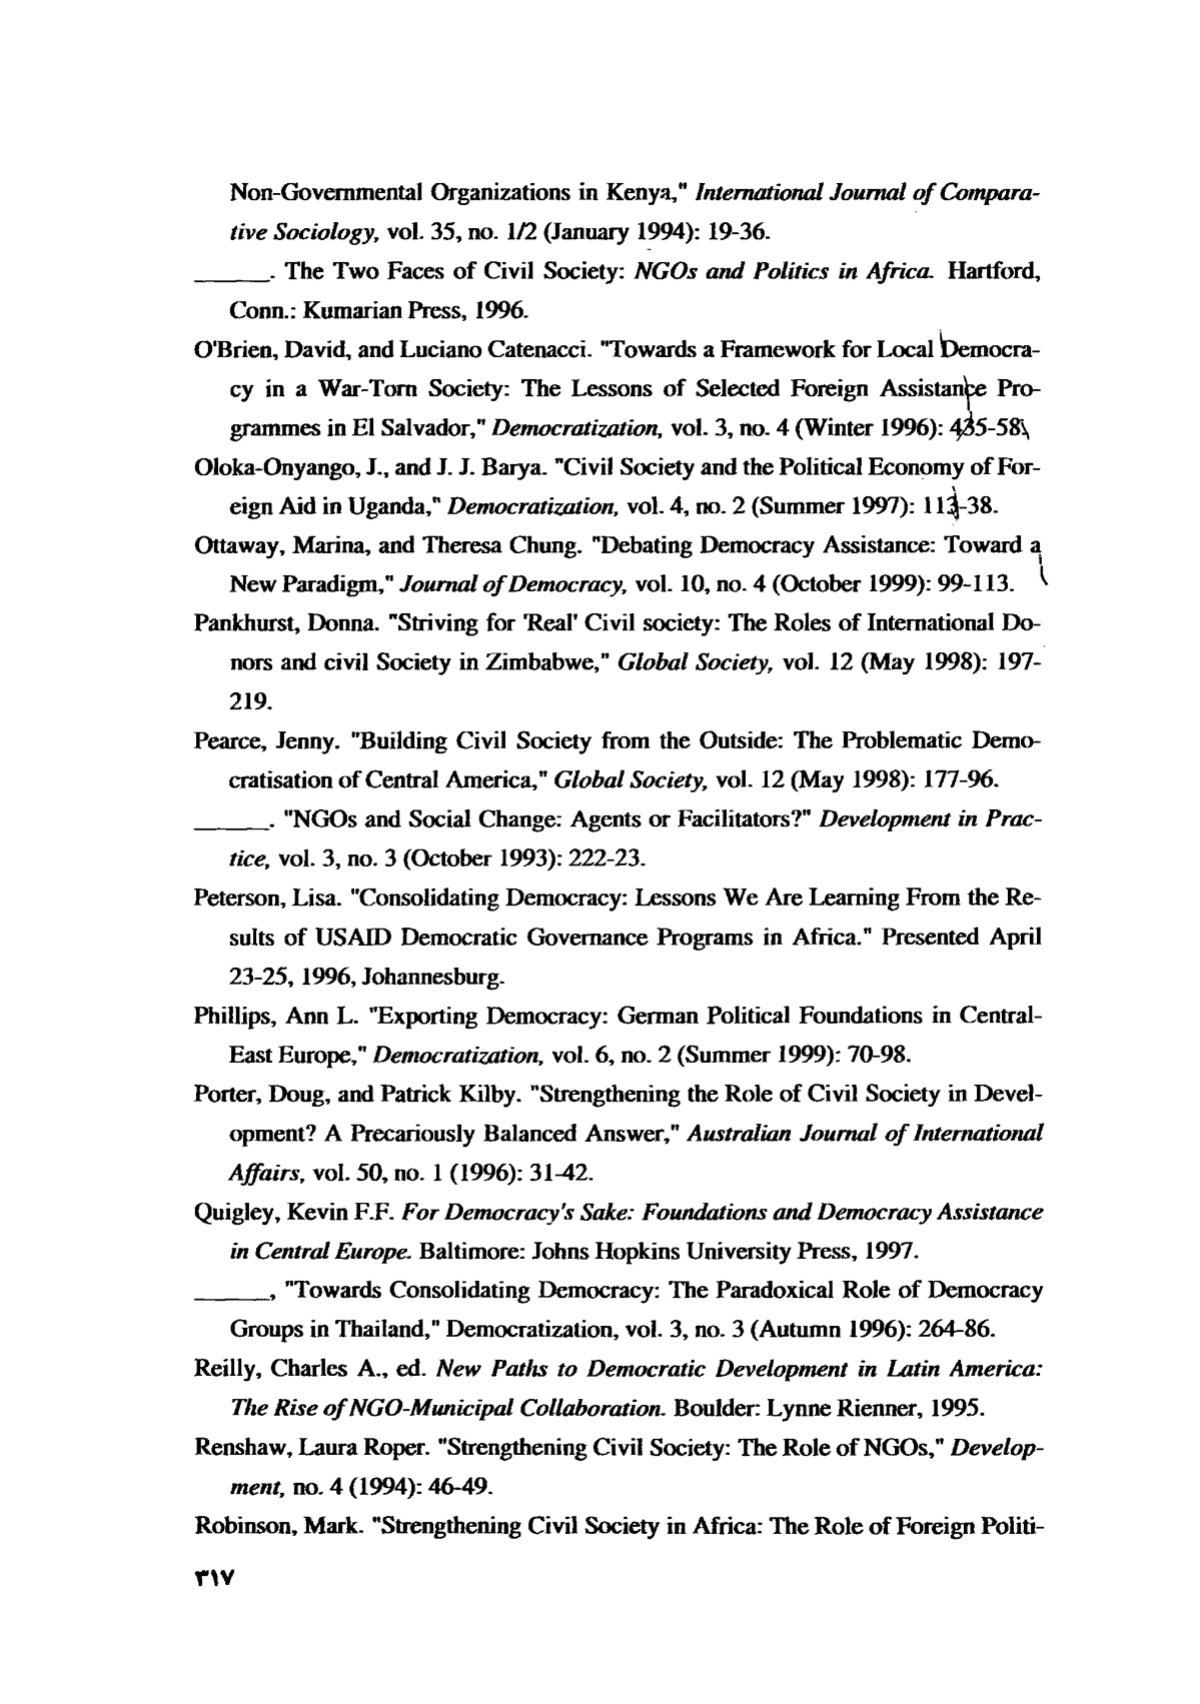 Non-Governmental Organizations in Kenya," International Journal of Compara-
tive Sociology, vol. 35, no. 1/2 (January 1994): 19-36.
______. The Two Faces of Civil Society: NGOs and Politics in Africa. Hartford,
Conn.: Kumarian Press, 1996.
O'Brien, David, and Luciano Catenacci. "Towards a Framework for Local Democra-
cy in a War-Torn Society: The Lessons of Selected Foreign Assistance Pro-
grammes in El Salvador," Democratization, vol. 3, no. 4 (Winter 1996): 435-58.
Oloka-Onyango, J., and J. J. Barya. "Civil Society and the Political Economy of For-
eign Aid in Uganda," Democratization, vol. 4, no. 2 (Summer 1997): 113-38.
Ottaway, Marina, and Theresa Chung. "Debating Democracy Assistance: Toward a
New Paradigm," Journal of Democracy, vol. 10, no. 4 (October 1999): 99-113.
Pankhurst, Donna. "Striving for 'Real' Civil society: The Roles of International Do-
nors and civil Society in Zimbabwe," Global Society, vol. 12 (May 1998): 197-
219.
Pearce, Jenny. "Building Civil Society from the Outside: The Problematic Demo-
cratisation of Central America," Global Society, vol. 12 (May 1998): 177-96.
______. "NGOs and Social Change: Agents or Facilitators?" Development in Prac-
tice, vol. 3, no. 3 (October 1993): 222-23.
Peterson, Lisa. "Consolidating Democracy: Lessons We Are Learning From the Re-
sults of USAID Democratic Governance Programs in Africa." Presented April
23-25, 1996, Johannesburg.
Phillips, Ann L. "Exporting Democracy: German Political Foundations in Central-
East Europe," Democratization, vol. 6, no. 2 (Summer 1999): 70-98.
Porter, Doug, and Patrick Kilby. "Strengthening the Role of Civil Society in Devel-
opment? A Precariously Balanced Answer," Australian Journal of International
Affairs, vol. 50, no. 1 (1996): 31-42.
Quigley, Kevin F.F. For Democracy's Sake: Foundations and Democracy Assistance
in Central Europe. Baltimore: Johns Hopkins University Press, 1997.
______, "Towards Consolidating Democracy: The Paradoxical Role of Democracy
Groups in Thailand," Democratization, vol. 3, no. 3 (Autumn 1996): 264-86.
Reilly, Charles A., ed. New Paths to Democratic Development in Latin America:
The Rise of NGO-Municipal Collaboration. Boulder: Lynne Rienner, 1995.
Renshaw, Laura Roper. "Strengthening Civil Society: The Role of NGOs," Develop-
ment, no. 4 (1994): 46-49.
Robinson, Mark. "Strengthening Civil Society in Africa: The Role of Foreign Politi-
٣١٧